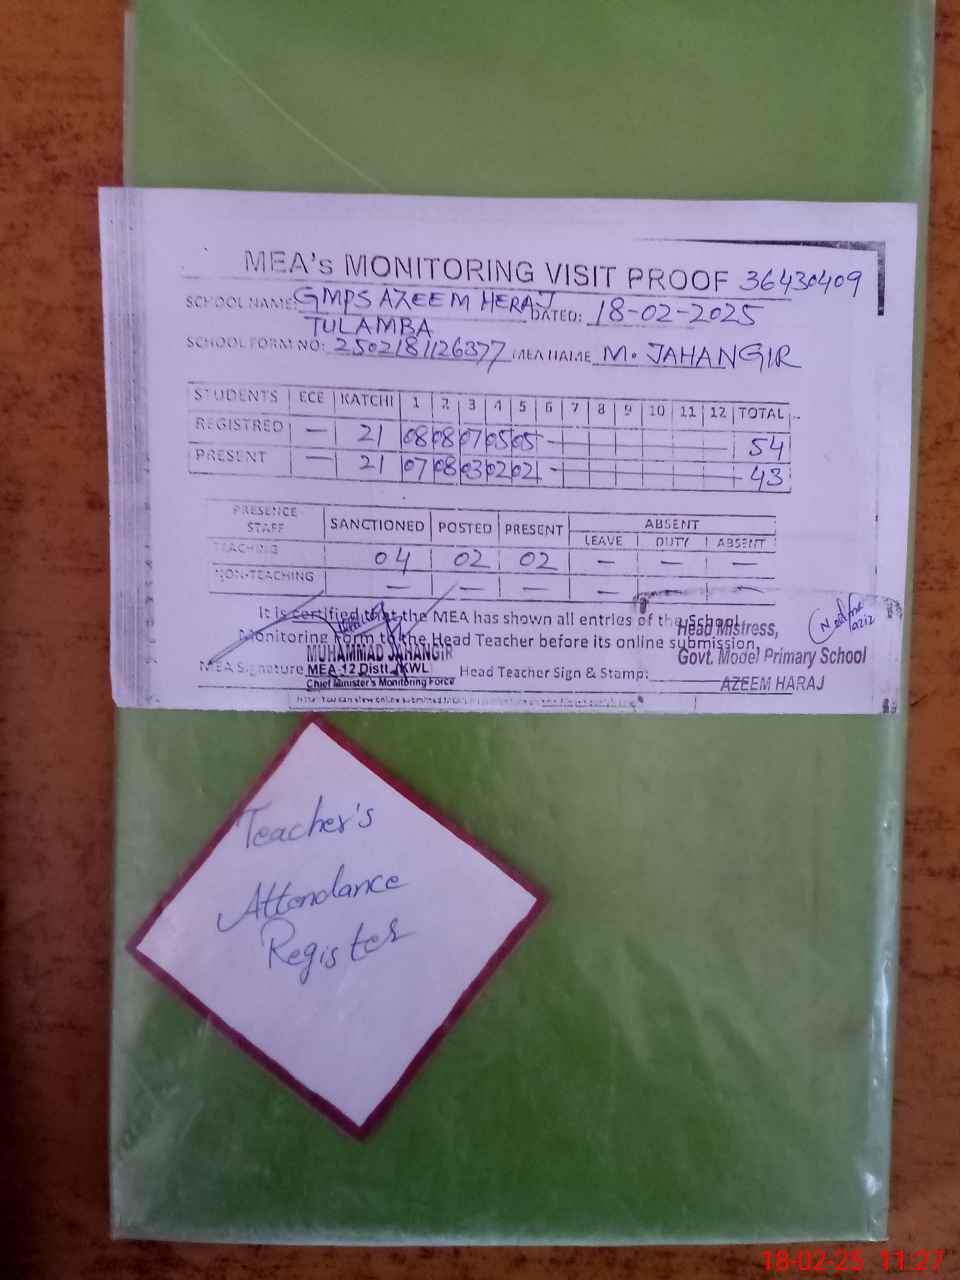 MEA's MONITORING VISIT PROOF 36430409
SCHOOL NAME: GMPS AZEEM HERAJ DATED: 18-02-2025
TULAMBA
SCHOOL FORM NO: 2502181126377 MEA NAME M. JAHANGIR
STUDENTS ECE KATCHI 1 2 3 4 5 6 7 8 9 10 11 12 TOTAL
REGISTRED — 21 08 08 07 05 05 — 54
PRESENT — 21 07 08 03 02 02 — 43
PRESENCE STAFF SANCTIONED POSTED PRESENT ABSENT
LEAVE DUTY ABSENT
TEACHING 04 02 02 — — —
NON-TEACHING — — — — — —
It is certified that the MEA has shown all entries of the School
Monitoring Form to the Head Teacher before its online submission.
Head Mistress,
Govt. Model Primary School
AZEEM HARAJ
MUHAMMAD JAHANGIR
MEA Signature MEA-12 Distt. (KWL) Head Teacher Sign & Stamp:
Chief Minister's Monitoring Force
Teacher's
Attendance
Register
18-02-25 11:27